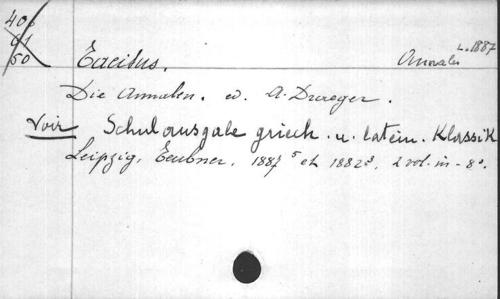 406
61
50
L. 1887
Tacitus. Annales
Die Annalen. ed. A. Draeger.
Voir Schulausgabe griech. u. latein. Klassik
Leipzig, Teubner. 1887⁵ et 1882³, 2 vol. in-8°.